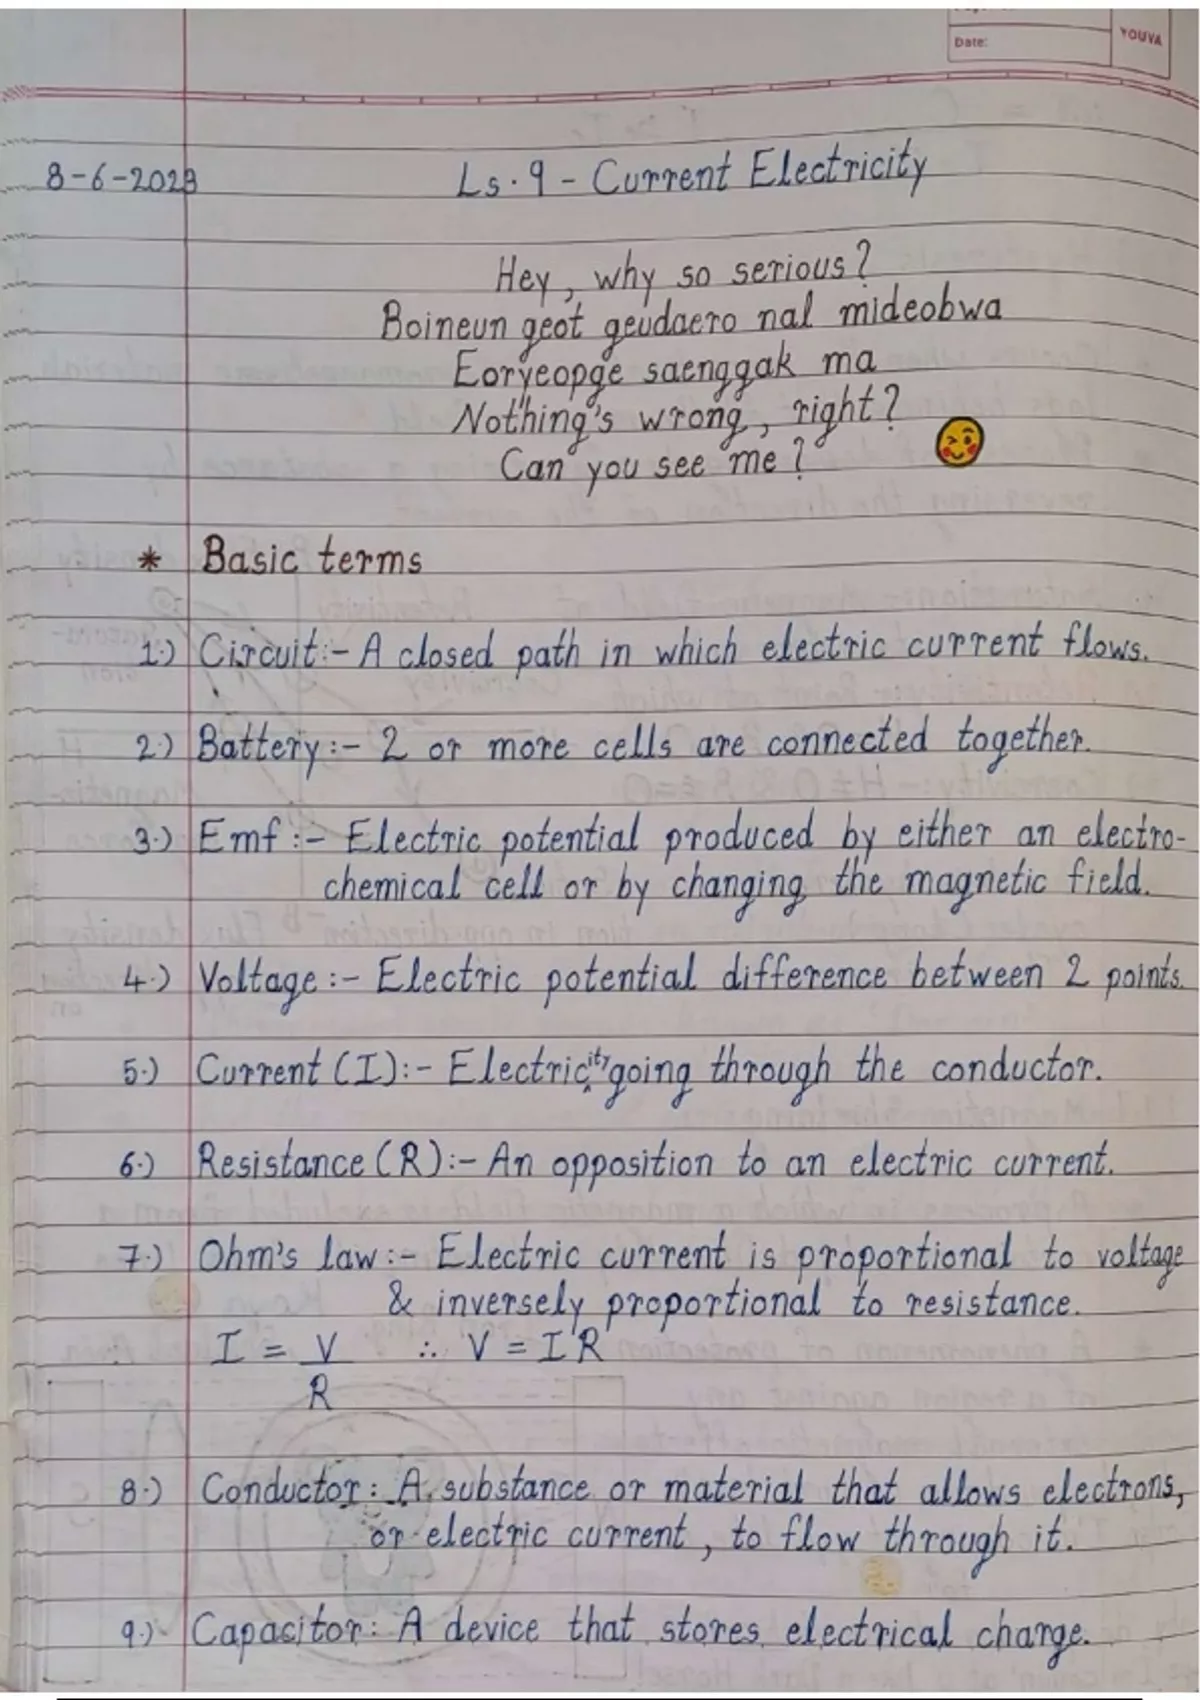 Date:
YOUVA
8-6-2023
Ls. 9 - Current Electricity
Hey, why so serious?
Boineun geot geudaero nal mideobwa
Eoryeopge saenggak ma
Nothing's wrong, right?
Can you see me?
* Basic terms
1.) Circuit:- A closed path in which electric current flows.
2.) Battery:- 2 or more cells are connected together.
3.) Emf:- Electric potential produced by either an electro-
chemical cell or by changing the magnetic field.
4.) Voltage:- Electric potential difference between 2 points.
5.) Current (I):- Electricity going through the conductor.
6.) Resistance (R):- An opposition to an electric current.
7.) Ohm's law:- Electric current is proportional to voltage
& inversely proportional to resistance.
I = V ∴ V = IR
R
8.) Conductor: A substance or material that allows electrons,
or electric current, to flow through it.
9.) Capacitor: A device that stores electrical charge.